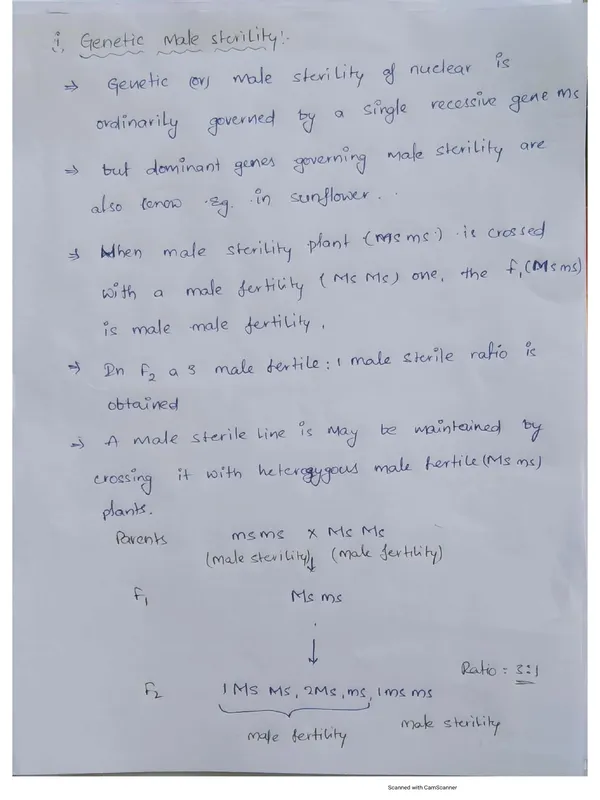 i, Genetic Male sterility:-
⇒ Genetic (or) male sterility of nuclear is
ordinarily governed by a single recessive gene ms
⇒ but dominant genes governing male sterility are
also know .eg. in sunflower..
⇒ When male sterility plant (msms) is crossed
with a male fertility (Ms Ms) one, the f1 (Msms)
is male male fertility,
⇒ In F2 a 3 male fertile : 1 male sterile ratio is
obtained
⇒ A male sterile line is may be maintained by
crossing it with heterogygous male fertile (Ms ms)
plants.
Parents msms x Ms Ms
(male sterility)↓ (male fertility)
F1 Ms ms
↓
Ratio : 3:1
F2 1 Ms Ms, 2Ms, ms, 1 ms ms
male fertility male sterility
Scanned with CamScanner